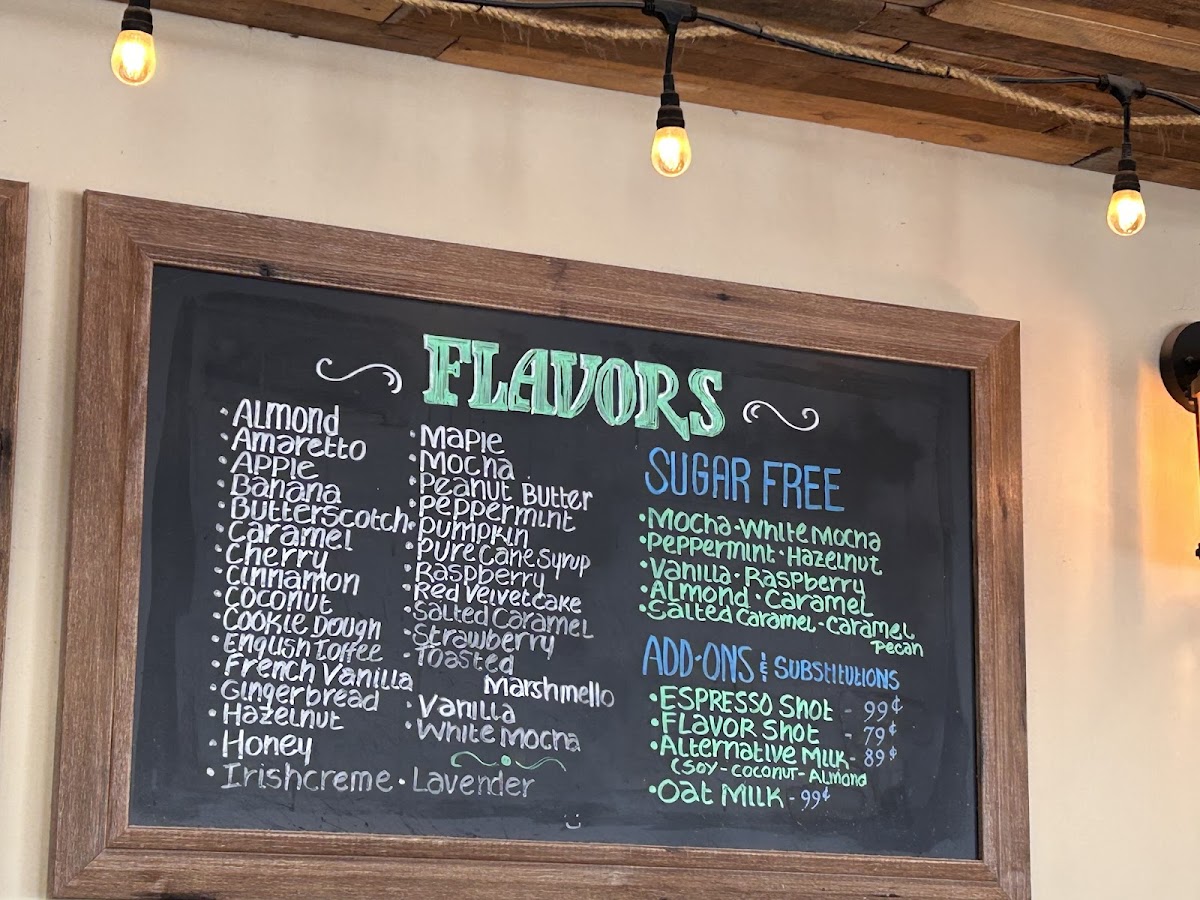 FLAVORS
· Almond
· Amaretto
· Apple
· Banana
· Butterscotch
· Caramel
· Cherry
· Cinnamon
· Coconut
· Cookie Dough
· English Toffee
· French Vanilla
· Gingerbread
· Hazelnut
· Honey
· Irishcreme · Lavender
· Maple
· Mocha
· Peanut Butter
· Peppermint
· Pumpkin
· Pure Cane Syrup
· Raspberry
· Red Velvet Cake
· Salted Caramel
· Strawberry
· Toasted
Marshmello
· Vanilla
· White Mocha
SUGAR FREE
· Mocha · White Mocha
· Peppermint · Hazelnut
· Vanilla · Raspberry
· Almond · Caramel
· Salted Caramel - Caramel
Pecan
ADD-ONS & SUBSTITUTIONS
· ESPRESSO Shot - 99¢
· Flavor Shot - 79¢
· Alternative Milk - 89¢
(Soy - Coconut - Almond
· Oat Milk - 99¢